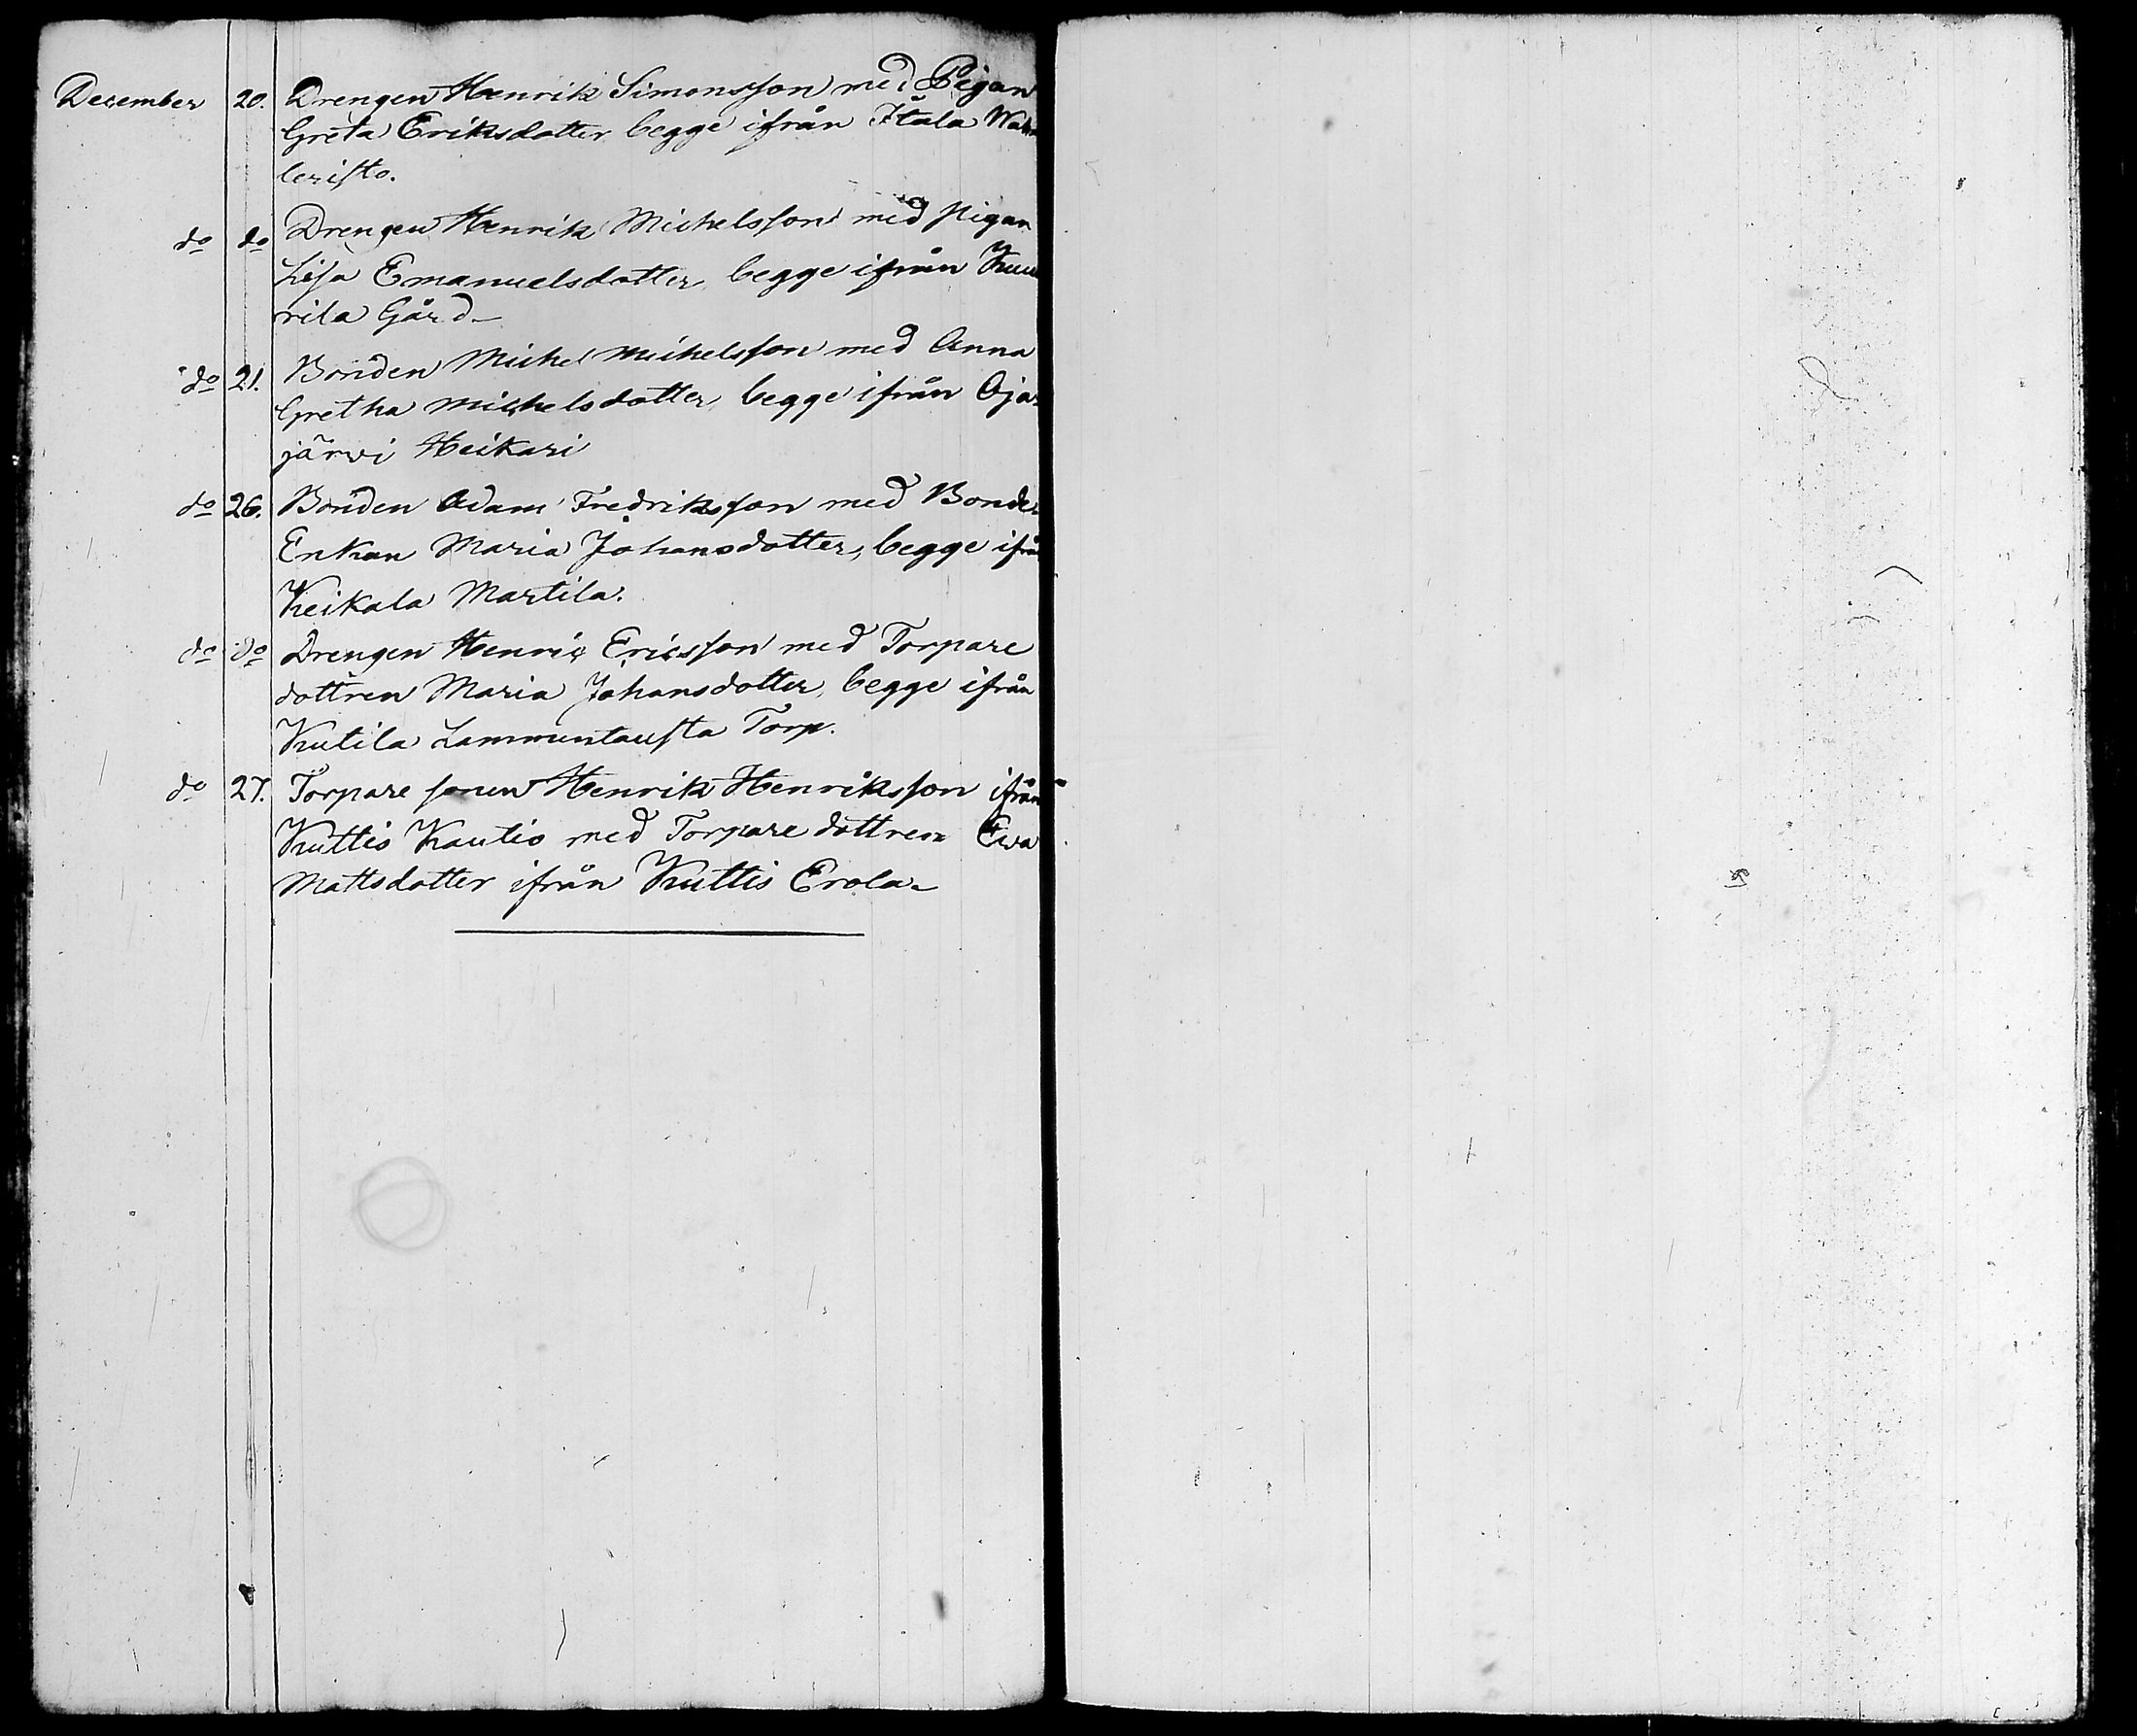 December 20. Drengen Henrik Simonsson med Pigan
Greta Eriksdotter begge ifrån Itala
leristo.
do do Drengen Henrik Michelsson med pigan
Lisa Emanuelsdotter, begge ifrån
rila Gård
do 21. Bonden Michel Michelsson med Anna
Gretha Michelsdotter, begge ifrån Oja-
järwi Heikari
do 26. Bonden Adam Fredriksson med Bonde-
Enkan Maria Johansdotter, begge ifrån
Keikala Martila.
do do Drengen Henric Ericsson med Torpare
dottren Maria Johansdotter, begge ifrån
Kutila Lammintausta Torp.
do 27. Torpare sonen Henrik Henriksson ifrån
Kuttis Kautio med Torpare dottren Ewa
Mattsdotter ifrån Kuttis Erola